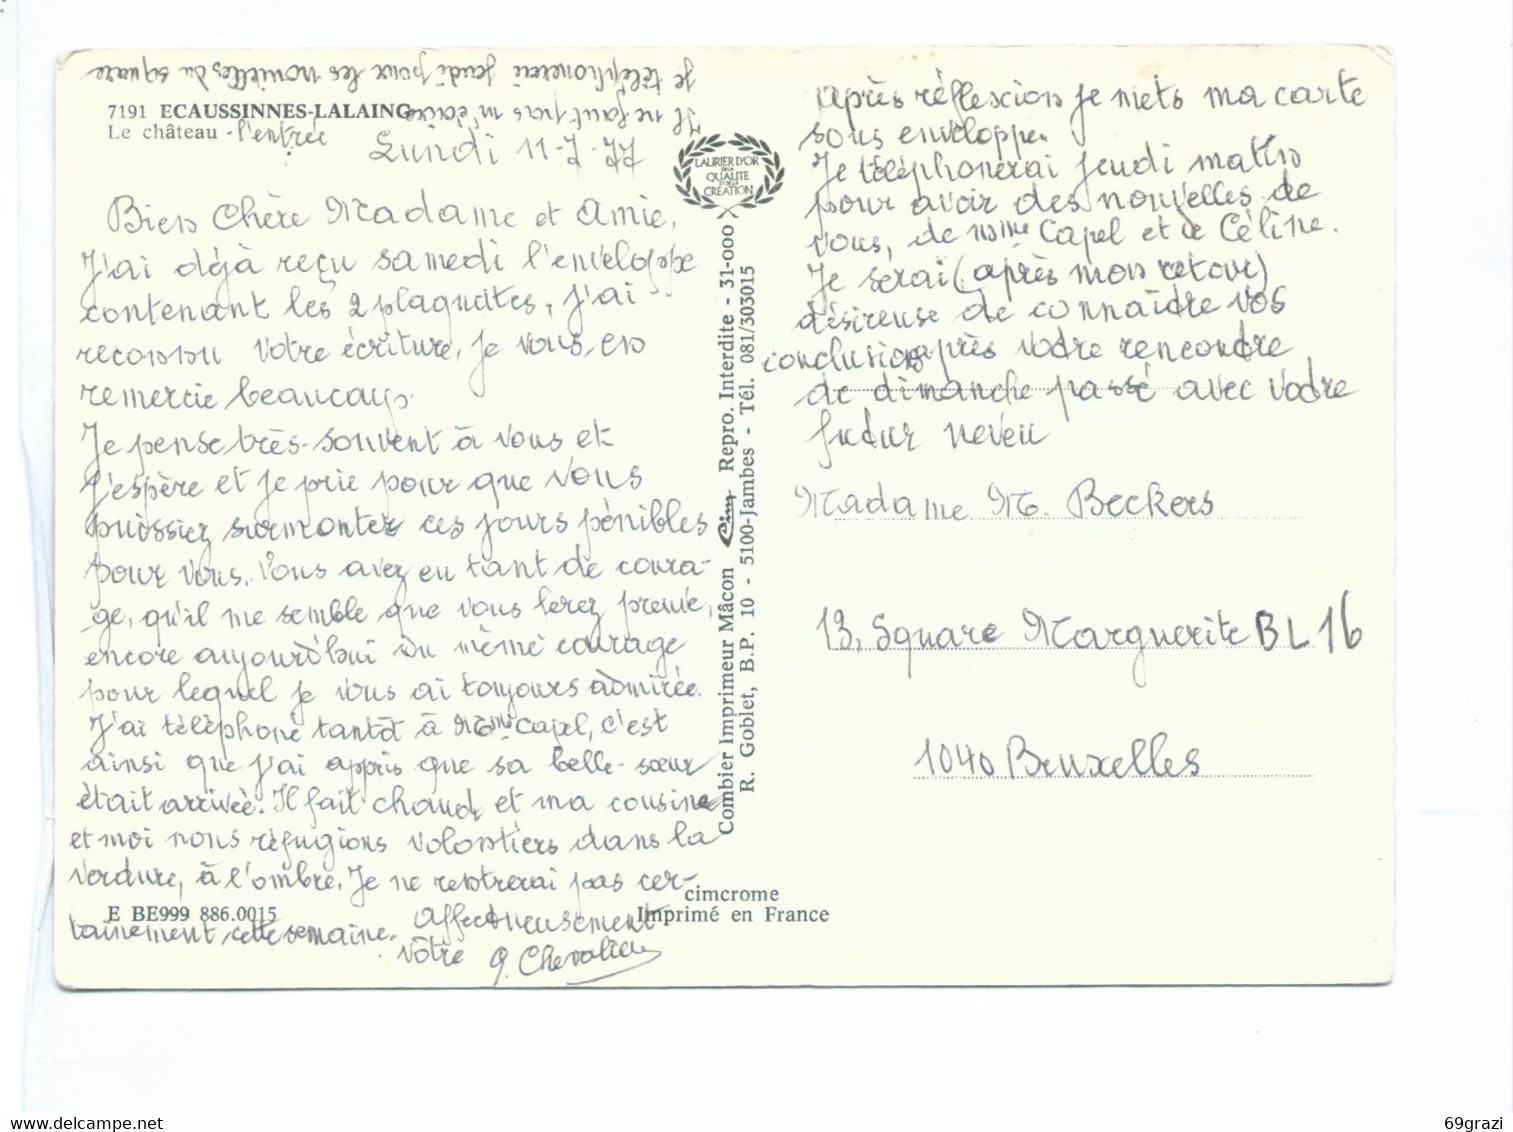 Je téléphonerai jeudi pour les nouvelles du square
Il ne faut pas m'écrire
7191 ECAUSSINNES-LALAING
Le château - l'entrée
Lundi 11-7-77
Bien Chère Madame et Amie,
J'ai déjà reçu samedi l'enveloppe
contenant les 2 plaquettes, j'ai
reconnu votre écriture, je vous en
remercie beaucoup.
Je pense très souvent à vous et
j'espère et je prie pour que vous
puissiez surmonter ces jours pénibles
pour vous. Vous avez eu tant de coura-
ge, qu'il me semble que vous ferez preuve,
encore aujourd'hui du même courage
pour lequel je vous ai toujours admirée.
J'ai téléphoné tantôt à Mme Capel, c'est
ainsi que j'ai appris que sa belle-sœur
était arrivée. Il fait chaud, et ma cousine
et moi nous réfugions volontiers dans la
verdure, à l'ombre. Je ne rentrerai pas cer-
tainement cette semaine.
Affectueusement
vôtre
G. Chevalier
E BE999 886.0015
cimcrome
Imprimé en France
LAURIER D'OR
DE LA
QUALITE
ET DE LA
CREATION
Combier Imprimeur Mâcon Cim Repro. Interdite - 31-000
R. Goblet, B.P. 10 - 5100-Jambes - Tél. 081/303015
Après réflexcion je mets ma carte
sous enveloppe.
Je téléphonerai jeudi matin
pour avoir des nouvelles de
vous, de Mme Capel et de Céline.
Je serai (après mon retour)
désireuse de connaître vos
conclusions après votre rencontre
de dimanche passé avec votre
futur neveu
Madame M. Beckers
13, Square Marguerite BL 16
1040 Bruxelles
www.delcampe.net
69grazi